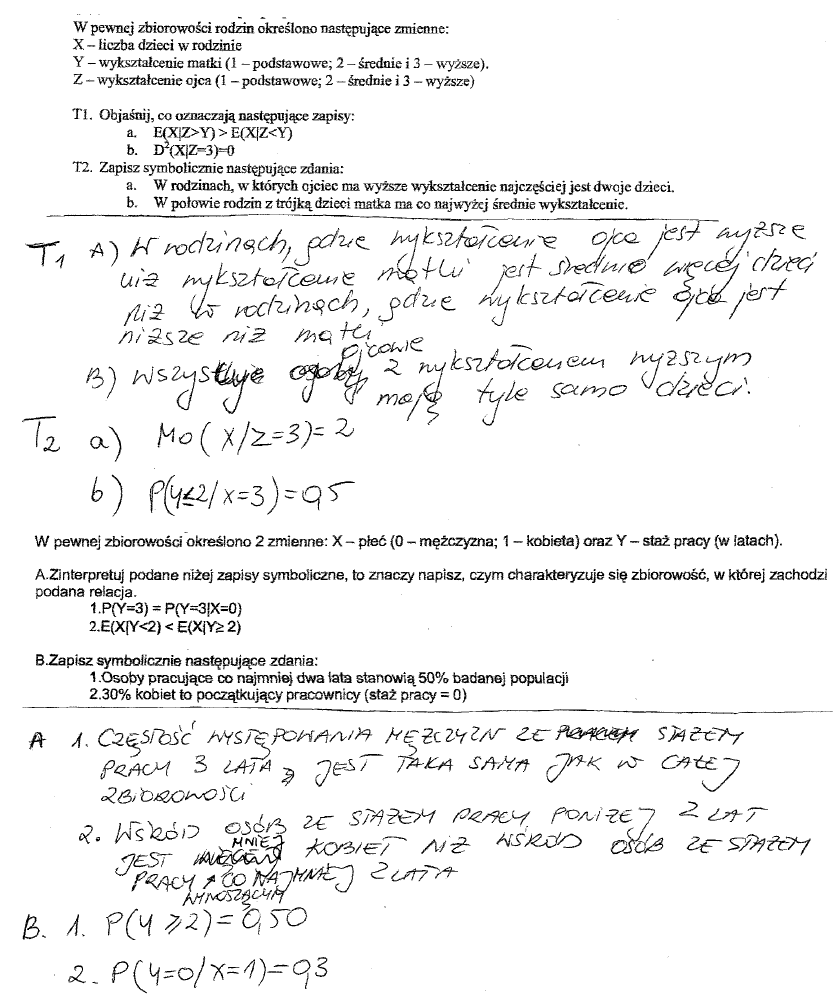 W pewnej zbiorowości rodzin określono następujące zmienne:
X – liczba dzieci w rodzinie
Y – wykształcenie matki (1 – podstawowe; 2 – średnie i 3 – wyższe).
Z – wykształcenie ojca (1 – podstawowe; 2 – średnie i 3 – wyższe)
T1. Objaśnij, co oznaczają następujące zapisy:
a. E(X|Z>Y) > E(X|Z<Y)
b. D²(X|Z=3)=0
T2. Zapisz symbolicznie następujące zdania:
a. W rodzinach, w których ojciec ma wyższe wykształcenie najczęściej jest dwoje dzieci.
b. W połowie rodzin z trójką dzieci matka ma co najwyżej średnie wykształcenie.
T1 A) W rodzinach, gdzie wykształcenie ojca jest wyższe
niż wykształcenie matki jest średnio więcej dzieci
niż w rodzinach, gdzie wykształcenie ojca jest
niższe niż matki
B) Wszystkie ojcowie z wykształceniem wyższym
mają tyle samo dzieci.
T2 a) Mo(X/Z=3)=2
b) P(Y≤2/X=3)=0,5
W pewnej zbiorowości określono 2 zmienne: X – płeć (0 – mężczyzna; 1 – kobieta) oraz Y – staż pracy (w latach).
A.Zinterpretuj podane niżej zapisy symboliczne, to znaczy napisz, czym charakteryzuje się zbiorowość, w której zachodzi
podana relacja.
1.P(Y=3) = P(Y=3|X=0)
2.E(X|Y<2) < E(X|Y≥ 2)
B.Zapisz symbolicznie następujące zdania:
1.Osoby pracujące co najmniej dwa lata stanowią 50% badanej populacji
2.30% kobiet to początkujący pracownicy (staż pracy = 0)
A 1. CZĘSTOŚĆ WYSTĘPOWANIA MĘŻCZYZN ZE STAŻEM
PRACY 3 LATA, JEST TAKA SAMA JAK W CAŁEJ
ZBIOROWOŚCI
2. WŚRÓD OSÓB ZE STAŻEM PRACY PONIŻEJ 2 LAT
JEST MNIEJ KOBIET NIŻ WŚRÓD OSÓB ZE STAŻEM
PRACY WYNOSZĄCYM CO NAJMNIEJ 2 LATA
B. 1. P(Y≥2)=0,50
2. P(Y=0/X=1)=0,3